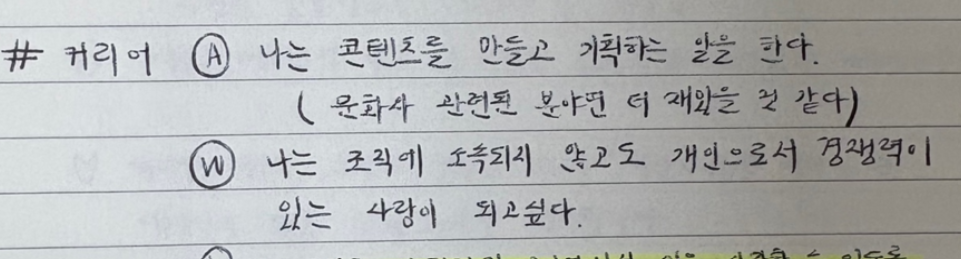 # 커리어 Ⓐ 나는 콘텐츠를 만들고 기획하는 일을 한다.
( 문화사 관련된 분야면 더 재밌을 것 같다)
Ⓦ 나는 조직에 소속되지 않고도 개인으로서 경쟁력이
있는 사람이 되고싶다.